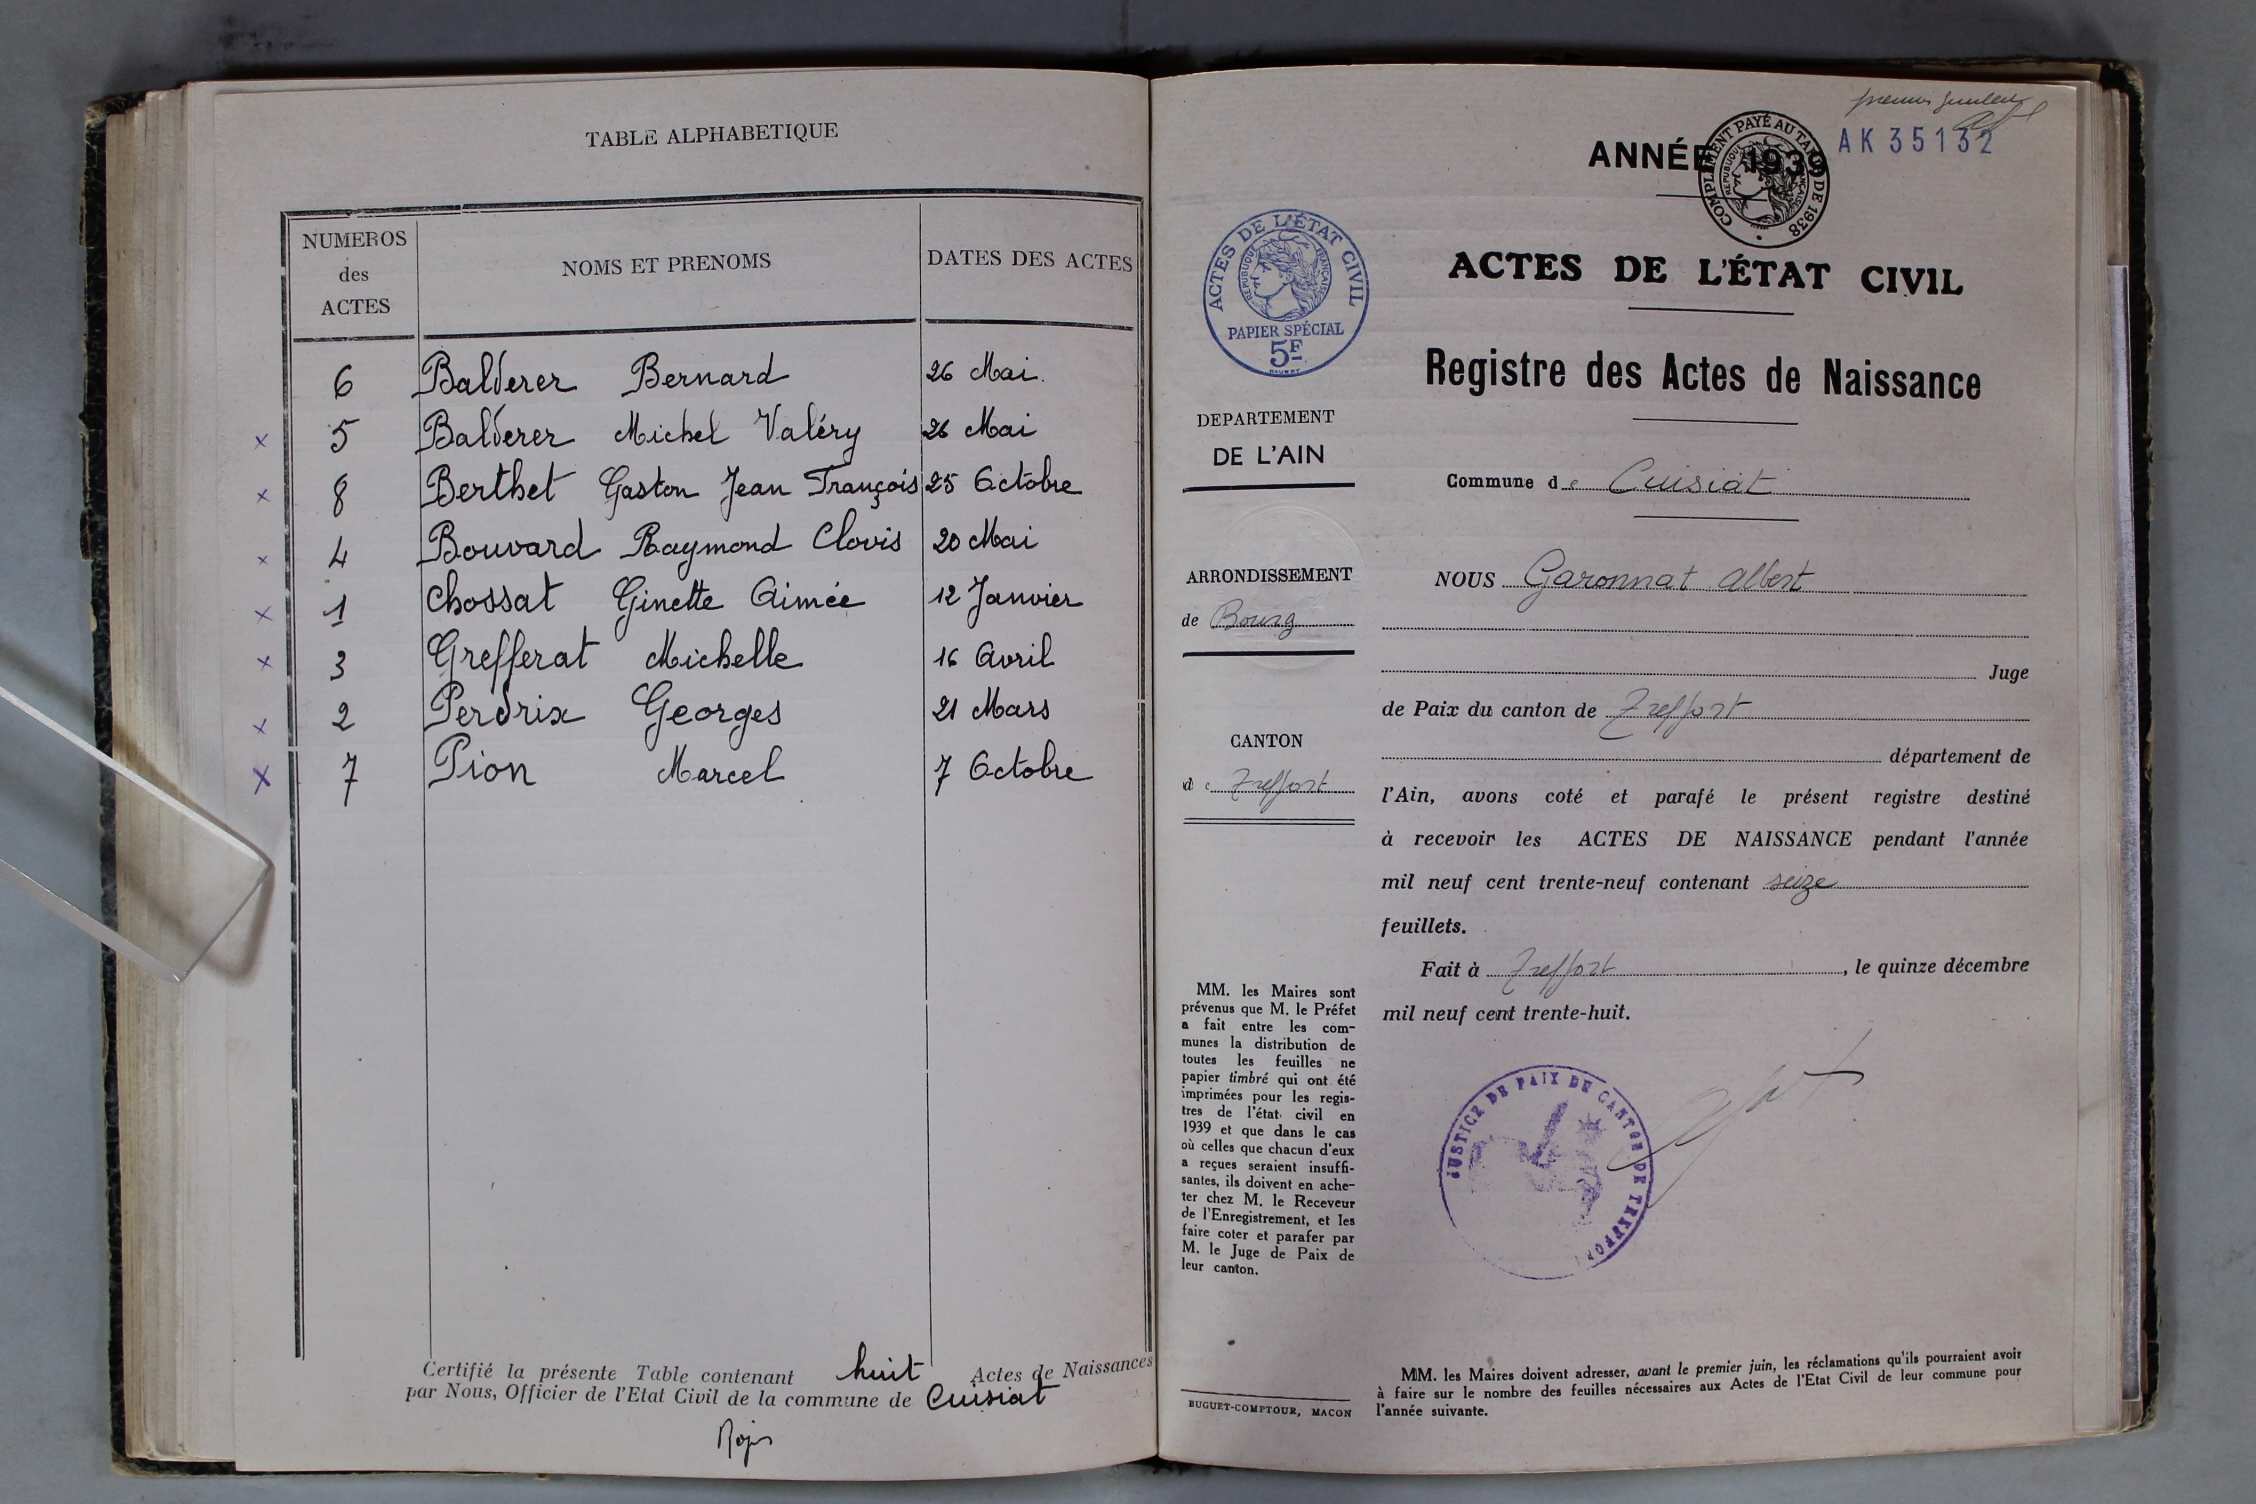 TABLE ALPHABETIQUE
NUMEROS des ACTES
NOMS ET PRENOMS
DATES DES ACTES
6 Balderer Bernard 26 Mai
x 5 Balderer Michel Valéry 26 Mai
x 8 Berthet Gaston Jean François 25 Octobre
x 4 Bouvard Raymond Clovis 20 Mai
x 1 Chossat Ginette Aimée 12 Janvier
x 3 Grefferat Michelle 16 Avril
x 2 Perdrix Georges 21 Mars
x 7 Pion Marcel 7 Octobre
Certifié la présente Table contenant huit Actes de Naissances
par Nous, Officier de l'Etat Civil de la commune de Cuisiat
premier
AK 35132
ANNÉE 1939
COMPLEMENT PAYÉ AU TARIF DE 1938
REPUBLIQUE FRANÇAISE
ACTES DE L'ÉTAT CIVIL
REPUBLIQUE FRANÇAISE
PAPIER SPÉCIAL
5F
DEPARTEMENT
DE L'AIN
ARRONDISSEMENT
de Bourg
CANTON
de Treffort
MM. les Maires sont
prévenus que M. le Préfet
a fait entre les com-
munes la distribution de
toutes les feuilles ne
papier timbré qui ont été
imprimées pour les regis-
tres de l'état civil en
1939 et que dans le cas
où celles que chacun d'eux
a reçues seraient insuffi-
santes, ils doivent en ache-
ter chez M. le Receveur
de l'Enregistrement, et les
faire coter et parafer par
M. le Juge de Paix de
leur canton.
BUGUET-COMPTOUR, MACON
ACTES DE L'ÉTAT CIVIL
Registre des Actes de Naissance
Commune de Cuisiat
NOUS Garonnat Albert
Juge
de Paix du canton de Treffort
département de
l'Ain, avons coté et parafé le présent registre destiné
à recevoir les ACTES DE NAISSANCE pendant l'année
mil neuf cent trente-neuf contenant seize
feuillets.
Fait à Treffort, le quinze décembre
mil neuf cent trente-huit.
JUSTICE DE PAIX DU CANTON DE TREFFORT
MM. les Maires doivent adresser, avant le premier juin, les réclamations qu'ils pourraient avoir
à faire sur le nombre des feuilles nécessaires aux Actes de l'Etat Civil de leur commune pour
l'année suivante.